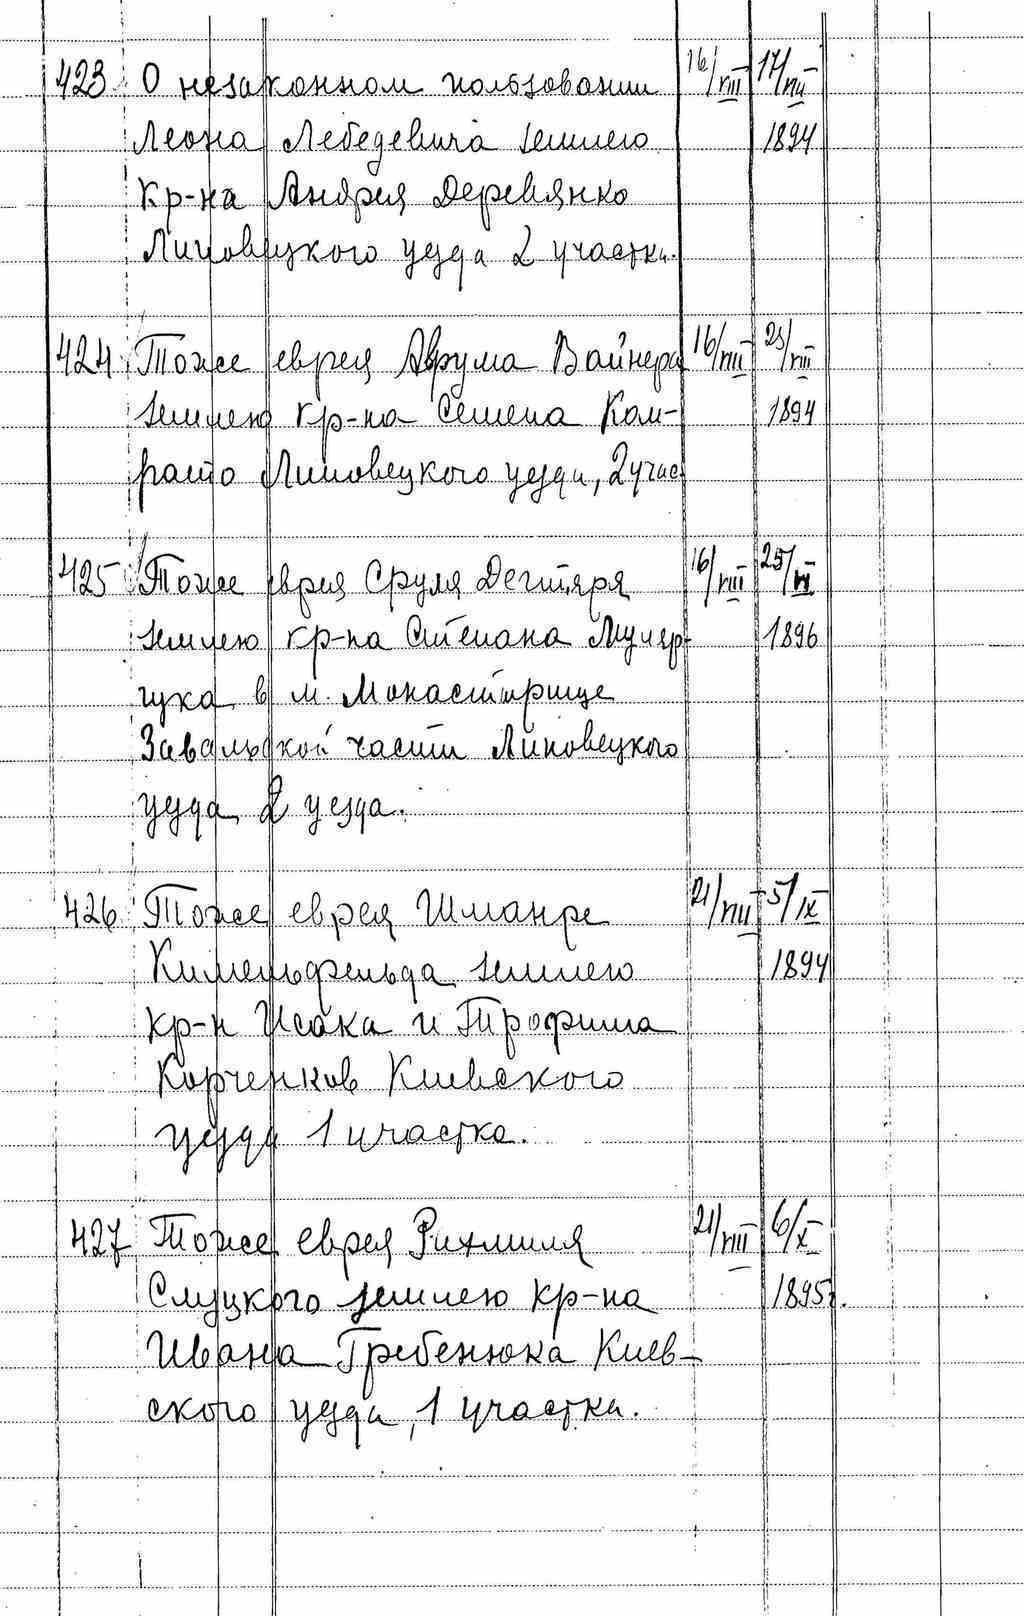 423 О незаконном пользовании 16/VIII 17/VII
Леона Лебедевича землею 1894
кр-на Андрея Деревянко
Липовецкого уезда 2 участка.
424 Тоже еврея Аврума Вайнера 16/VIII 23/VIII
землею кр-на Семена Ком- 1894
Липовецкого уезда, 2 учас
425 Тоже еврея Сруля Дегтяря 16/VIII 25/VI
землею кр-на Степана 1896
в м. Монастырище
Завальской части Липовецкого
уезда, 2 уезда.
426 Тоже еврея 21/VIII 5/IX
Кимельфельда землею 1894
кр-н Исака и Трофима
Корченков Киевского
уезда 1 участка.
427 Тоже еврея Рихмиля 21/VIII 6/X
Слуцкого землею кр-на 1895г.
Ивана Гребенюка Киев-
ского уезда, 1 участка.